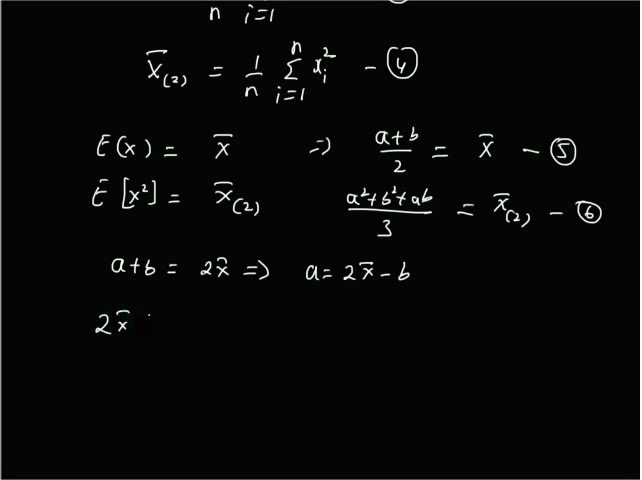 n i=1
x̄₍₂₎ = 1/n Σⁿᵢ₌₁ xᵢ² - ④
E(x) = x̄ ⇒ (a+b)/2 = x̄ - ⑤
E[x²] = x̄₍₂₎ (a²+b²+ab)/3 = x̄₍₂₎ - ⑥
a+b = 2x̄ ⇒ a = 2x̄ - b
2x̄